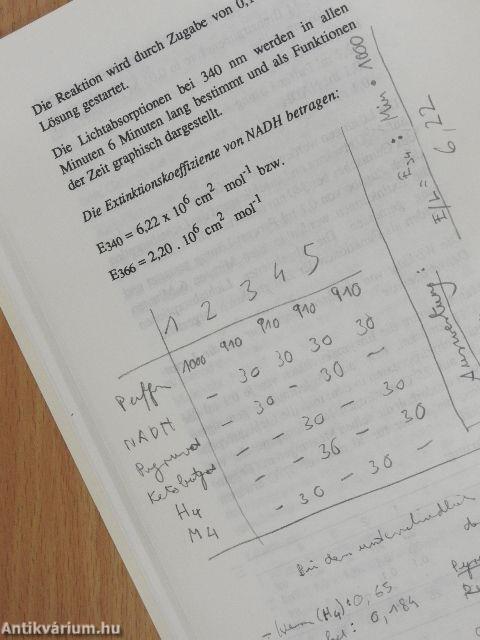 Die Reaktion wird durch Zugabe von 0,1
Lösung gestartet.
Die Lichtabsorptionen bei 340 nm werden in allen
Minuten 6 Minuten lang bestimmt und als Funktionen
der Zeit graphisch dargestellt.
Die Extinktionskoeffiziente von NADH betragen:
E340 = 6,22 x 10⁶ cm² mol⁻¹ bzw.
E366 = 2,20 . 10⁶ cm² mol⁻¹
1 2 3 4 5
Puffer 1000 910 910 910 910
NADH - 30 30 30 30
Pyruvat - 30 - 30 -
Ketobutyrat - - 30 - 30
H4 - - 30 - 30
M4 - 30 - 30 -
Auswertung:
: Min · 1000
6,22
(H4) : 0,65
: 0,184
Antikvárium.hu